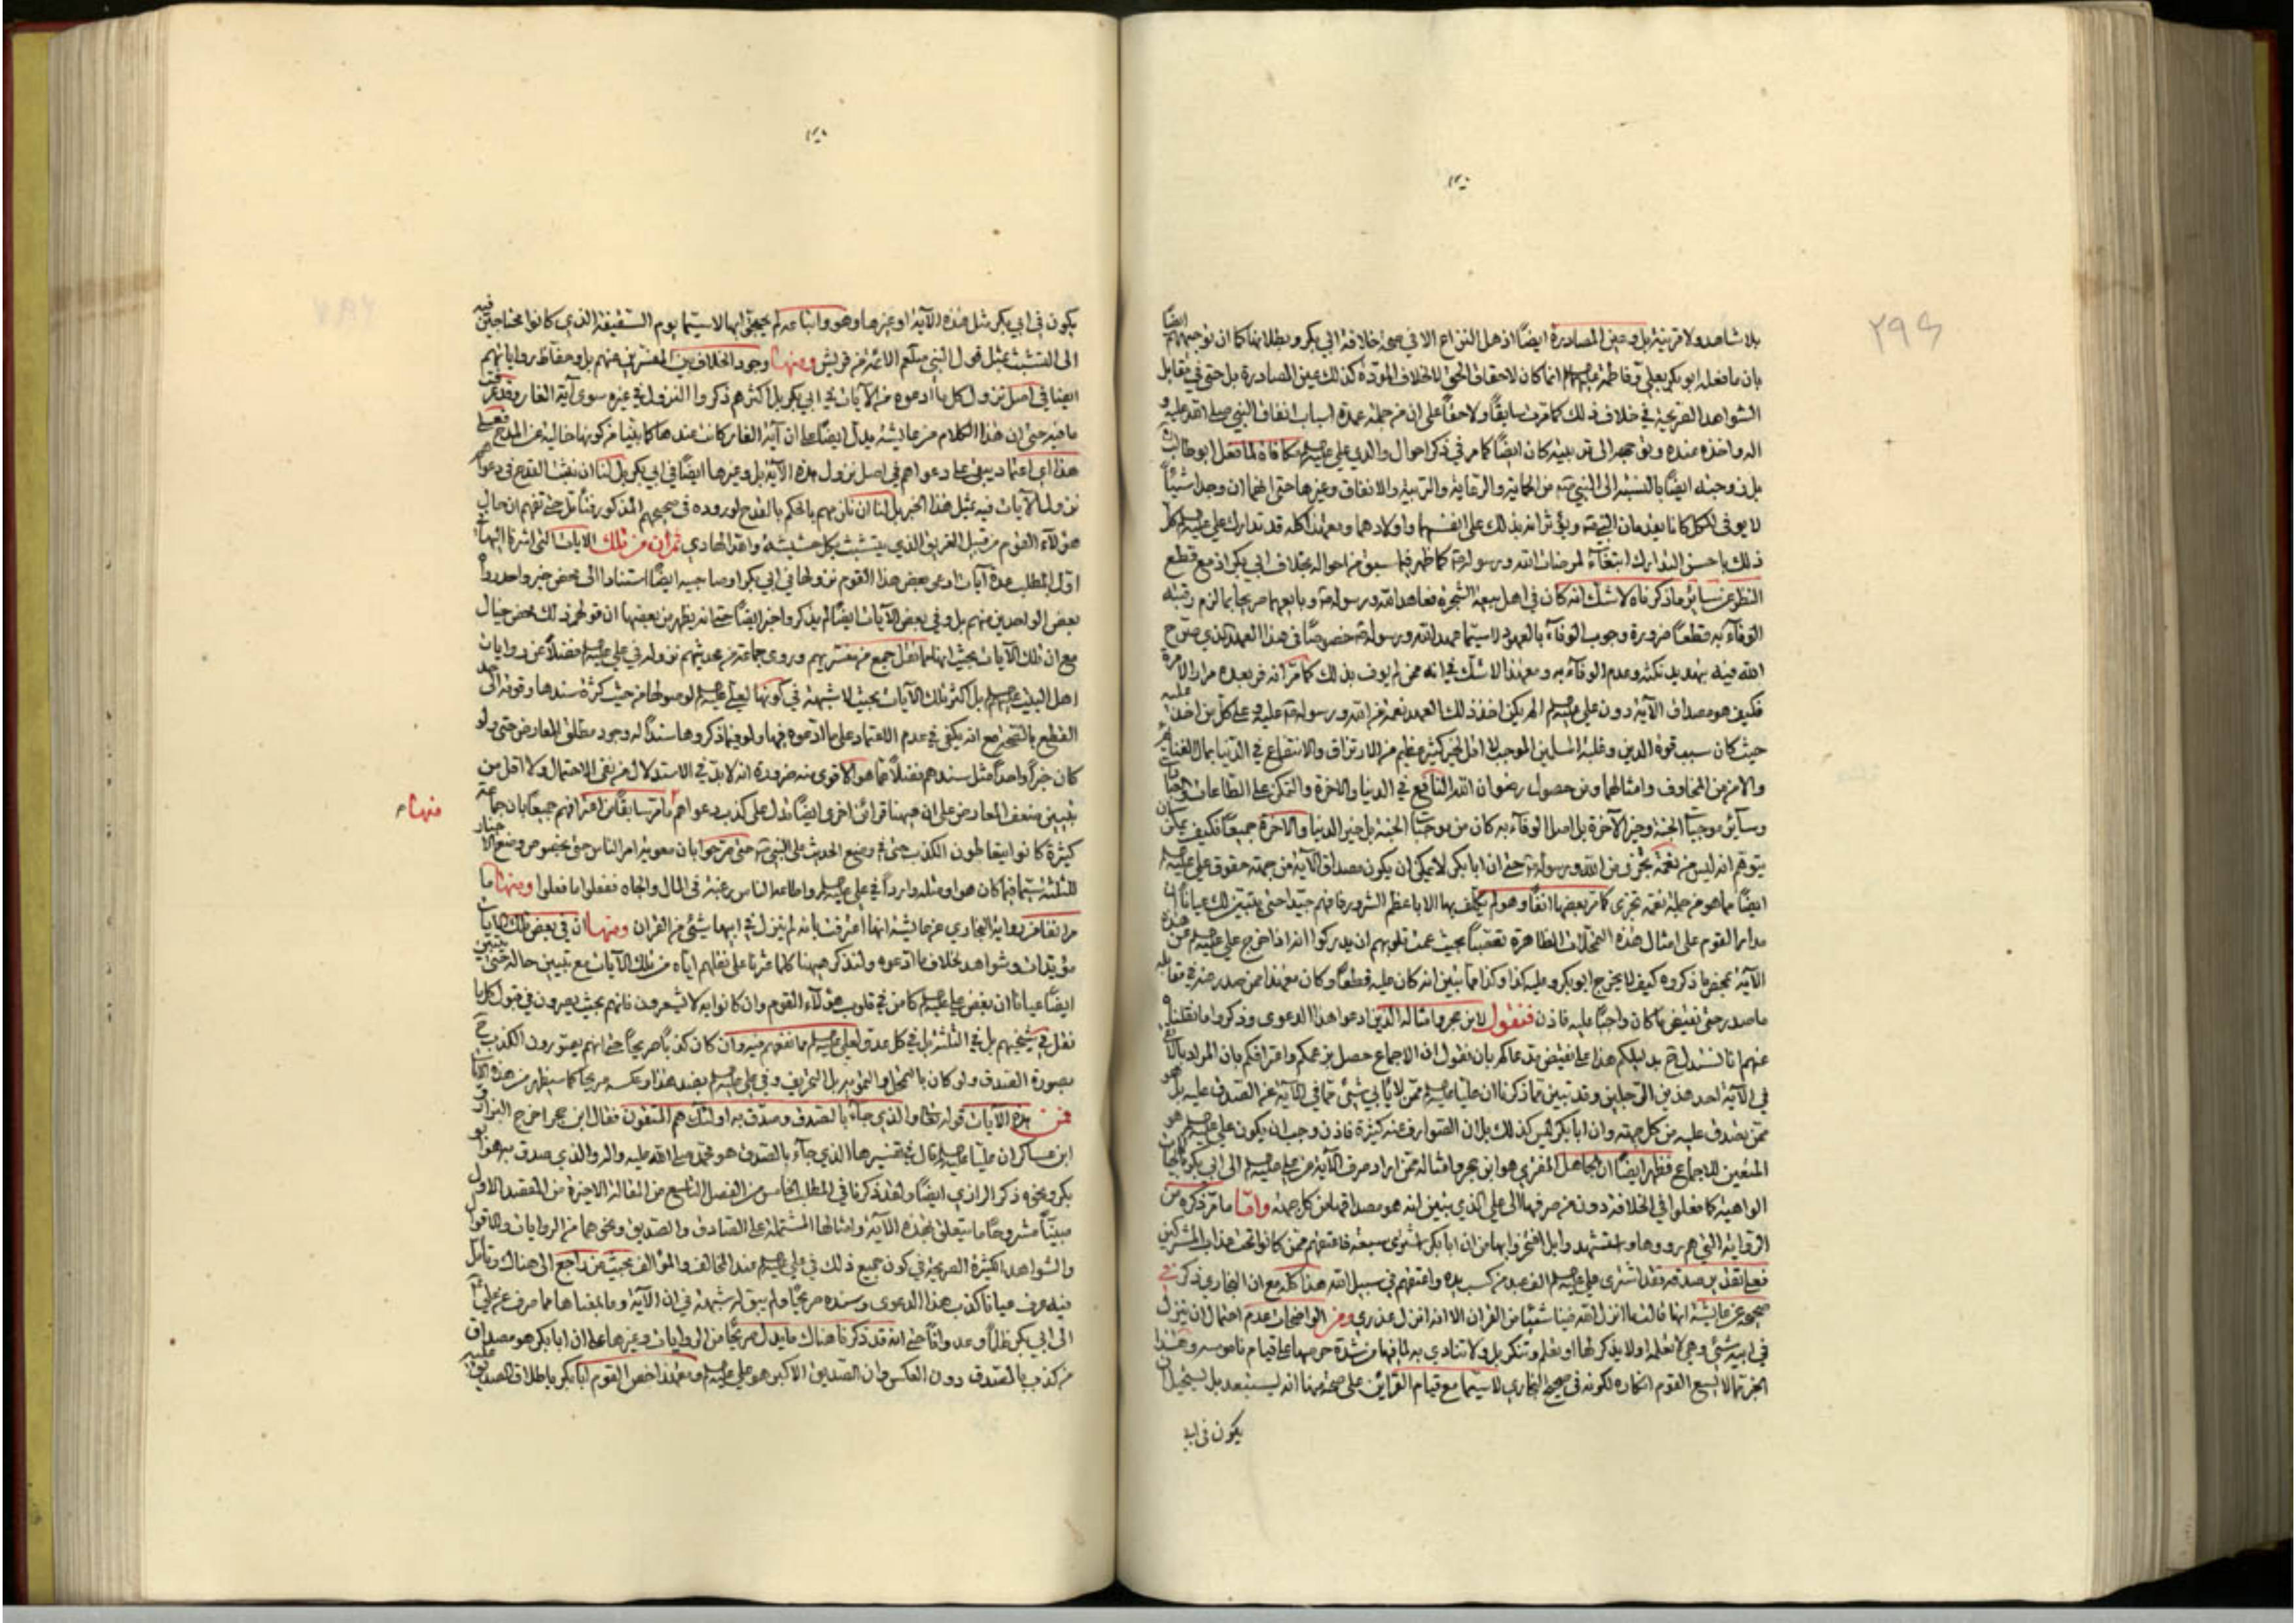 ٢٩٤
بلا شاهد ولا قرينة بل وعين المصادرة ايضاً اذ هل النزاع الا في صحة خلافة ابي بكر وبطلانها كما ان توجيههم ايضاً
بان ما فعله ابو بكر بعلي وفاطمة عليهم السلم انما كان لاحقاق الحق لا لخلاف المودّة كذلك عين المصادرة بل حتى في مقابل
الشواهد الصريحة في خلاف ذلك كما مرت سابقاً ولاحقاً على ان من جملة عمدة اسباب انفاق النبي صلى الله عليه و
اله واخذه عنده وفي حجره الى تربيته كان ايضاً كما مر في ذكر احوال والدي علي عليه السلم مكافاة لما فعل ابو طالب
بل زوجته ايضاً بالنسبة الى النبي من الحماية والرعاية والتربية والانفاق وغيرها حتى انهما ان وجدا شيئاً
لا يوفي الكل كانا يقدمان النبي ويؤثرانه بذلك على انفسهما واولادهما ومع هذا كله قد تدارك علي عليه السلم كل
ذلك باحسن التدارك ابتغاء لمرضات الله ورسوله كما ظهر فيما سبق من احواله بخلاف ابي بكر اذ مع قطع
النظر عن سائر ما ذكرناه لا شك انه كان في اهل بيعة الشجرة فعاهد الله ورسوله وبايعهما صريحا بما لزم رقبته
الوفاء به قطعاً ضرورة وجوب الوفاء بالعهود لا سيما عهد الله ورسوله خصوصاً في هذا العهد الذي صرح
الله فيه بتهديد نكثه وعدم الوفاء به ومع هذا لا شك في انه ممن لم يوف بذلك كما مر انه فر بعده مرارا
فكيف هو مصداف الآية دون علي عليه السلم الم يكن اخذ ذلك العهد نعمة من الله ورسوله عليه وعلى كل من اخذ عليه
حيث كان سبب قوة الدين وغلبة المسلمين الموجب لا اقل لخير كثير عظيم من الارتزاق والانتفاع في الدنيا بمال الغنائم
والامن من المخاوف وامثالهما ومن حصول رضوان الله النافع في الدنيا والاخرة والتمكن على الطاعات
وسائر موجبات الجنة وخير الآخرة بل اصل الوفاء به كان من موجبات الجنة بل خير الدنيا والاخرة جميعاً فكيف يمكن ان
يتوهم انه ليس من نعمة تجزى من الله ورسوله حتى ان ابا بكر لا يمكن ان يكون مصداق الآية من جهة حقوق علي عليه السلم
ايضاً مما هو من جملة نعمة تجزى كما مر بعضها انفاً وهو لم يكلف بها الا باعظم الشرور فافهم جيداً حتى يتبين لك عياناً ان
مدار القوم على امثال هذه التمحلات الظاهرة تعصباً بحيث عمت قلوبهم ان يدركوا انه اذا خرج علي عليه السلم عن هذه
الآية بمحض ما ذكروه كيف لا يخرج ابو بكر وعليه كذا وكذا مما تبين انه كان عليه قطعاً وكان مع هذا ممن صدر منه في مقابله
ما صدر حتى نقيض ما كان واجباً عليه فاذن فنقول لابن حجر وامثاله الذين ادعوا هذا الدعوى وذكروا ما نقلنا
عنهم انا نستدل بدليلكم هذا على نقيض مدعاكم بان نقول ان الاجماع حصل بزعمكم واعترافكم بان المراد بالاتقى
في الآية احد هذين الرجلين وقد تبين مما ذكرنا ان علياً عليه السلم ممن لا يأبى شيء مما في الآية عن الصدق عليه بل هو
ممن يصدق عليه من كل جهة وان ابا بكر ليس كذلك بل ان الصوارف عنه كثيرة فاذن وجب ان يكون علي عليه السلم هو
المتعين للاجماع فظهر ايضاً ان المجاهل المفتري هو ابن حجر وامثاله ممن اراد صرف الآية عن علي عليه السلم الى ابي بكر
الواهية كما فعلوا في الخلافة دون من صرفها الى علي الذي تبين انه هو مصداقها من كل جهة واما ما مر ذكره من
الرواية التي هم رووها واستشهد وابل افتخروا بها من ان ابا بكر اشترى سبعة فاعتقهم ممن كانوا تحت عذاب المشركين
فعلى تقدير صدقه فقد اشترى علي عليه السلم الف عبد من كسب يده واعتقهم في سبيل الله هذا كله مع ان البخاري ذكر في
صحيحه عن عايشة انها قالت ما انزل الله فينا شيئا من القران الا انه انزل عذري ومن الواضحات عدم احتمال ان ينزل
في ابيه شيء وهي لا تعلمه او لا يذكر لها او تعلم وتنكر بل ولا تنادي به لما فيها من شدة حرصها على قيام ناموسه وهذا
الخبر مما لا يسع القوم انكاره لكونه في صحيح البخاري لا سيما مع قيام القرائن على صحة منها انه ليستبعد بل يستحيل ان
يكون في ابي
يكون في ابي بكر مثل هذه الآية او غيرها وهو واتباعه لم يحتجوا بها لا سيما يوم السقيفة الذي كانوا محتاجين فيه
الى التشبث بمثل قول النبي صلعم الائمة من قريش ومنها وجود الخلاف بين المفسرين منهم بل وحفاظ رواياتهم
ايضا في اصل نزول كل ما ادعوه من الآيات في ابي بكر بل اكثرهم ذكروا النزول في غيره سوى آية الغار وقد عرفت
ما فيه حتى ان هذا الكلام من عايشة يدل ايضاً على ان آية الغار كانت عندها كما بينا من كونها خالية عن المدح فعلى
هذا اي اعتماد يبقى على دعواهم في اصل نزول هذه الآية بل وغيرها ايضاً في ابي بكر بل لنا ان نثبت القدح في دعواهم
نزول الآيات فيه بمثل هذا الخبر بل لنا ان نلزمهم بالحكم بالقدح لوروده في صحيحهم المذكور فتأمل حتى تفهم ان حال
هؤلاء القوم من قبيل الغريق الذي يتشبث بكل حشيشة والله الهادي ثم ان من تلك الايات التي اشرنا اليها
اول المطلب عدة آيات ادعى بعض هذا القوم نزولها في ابي بكر او صاحبيه ايضاً استنادا الى محض خبر واحد رواه
بعض الواحدين منهم بل وفي بعض الآيات ايضاً لم يذكروا خبرا ايضاً حتى انه يظهر من بعضها ان قولهم ذلك محض خيال
مع ان تلك الآيات بحيث انها مما نقل جمع من مفسريهم وروى جماعة من محدثيهم نزوله في علي عليه السلم فضلاً عن روايات
اهل البيت عليهم السلم بل اكثر تلك الآيات بحيث لا شبهة في كونها لعلي عليه السلم لوصولها من حيث كثرة سندها وقوته الى حد
القطع بالصحة مع انه يكفي في عدم الاعتماد على ما ادعوه فيها ولو فيما ذكروها سنداً له وجود مطلق المعارض حتى ولو
كان خبراً واحداً مثل سندهم فضلاً عما هو الاقوى منه ضرورة انه لا بد في الاستدلال من نفي الاحتمال ولا اقل من
تبيين ضعف المعارض على ان ههنا قرائن اخرى ايضاً تدل على كذب دعواهم منها ما مر سابقاً من اعترافهم جميعاً بان جماعة
كثيرة كانوا يتعاطون الكذب حتى في وضع الحديث على النبي حتى صرحوا بان معوية امر الناس حتى بخصوص وضع الاخبار
للثلثة سيما فيما كان هو او مثله وارداً في علي عليه السلم واطاعه الناس رغبة في المال والجاه ففعلوا ما فعلوا ومنها ما
مر انفا من رواية البخاري عن عايشة انها اعترفت بانه لم ينزل في ابيها شيء من القران ومنها ان في بعض تلك الايات
مؤيدات وشواهد لخلاف ما ادعوه ولنذكر ههنا كلما عثرنا على نقلهم اياه من تلك الآيات مع تبيين حاله حتى يتبين
ايضاً عيانا ان بغض علي عليه السلم كامن في قلوب هؤلاء القوم وان كانوا به لا يشعرون فانهم بحيث يصرون في قبول كل ما
نقل في شيخيهم بل في الثلثة بل في كل عدو لعلي عليه السلم ما نفعهم خير وان كان كذباً صريحاً حتى انهم يصورون الكذب
بصورة الصدق ولو كان بالتمحل والتمويه بل التحريف وفي علي عليه السلم بضد هذا وعكسه صريحا كما سيظهر من هذه الآيات
فمن هذه الآيات قوله تعالى والذي جاء بالصدق وصدق به اولئك هم المتقون فقال ابن حجر اخرج البزار و
ابن عساكر ان علياً عليه السلم قال في تفسيرها الذي جاء بالصدق هو محمد صلى الله عليه واله والذي صدق به هو ابو
بكر ونحوه ذكر الرازي ايضاً ولقد ذكرنا في المطلب الخامس من الفصل التاسع من المقالة الاخيرة من المقصد الاول
مبيناً مشروحاً ما يتعلق بهذه الآية وامثالها المشتملة على الصادق والصديق ونحوهما من الروايات والاقوال
والشواهد الكثيرة الصريحة في كون جميع ذلك في علي عليه السلم عند المخالف والمؤالف بحيث من راجع الى هناك وتأمل
فيه عرف عيانا كذب هذا الدعوى وسنده صريحاً ولم يبق له شبهة في ان الآية وما بمعناها مما صرف عن علي
الى ابي بكر ظلماً وعدواناً حتى انه قد ذكرنا هناك ما يدل صريحاً من الروايات وغيرها على ان ابا بكر هو مصداق
من كذب بالصدق دون العكس وان الصديق الاكبر هو علي عليه السلم ومع هذا خص القوم ابا بكر باطلاق الصديق عليه
منها